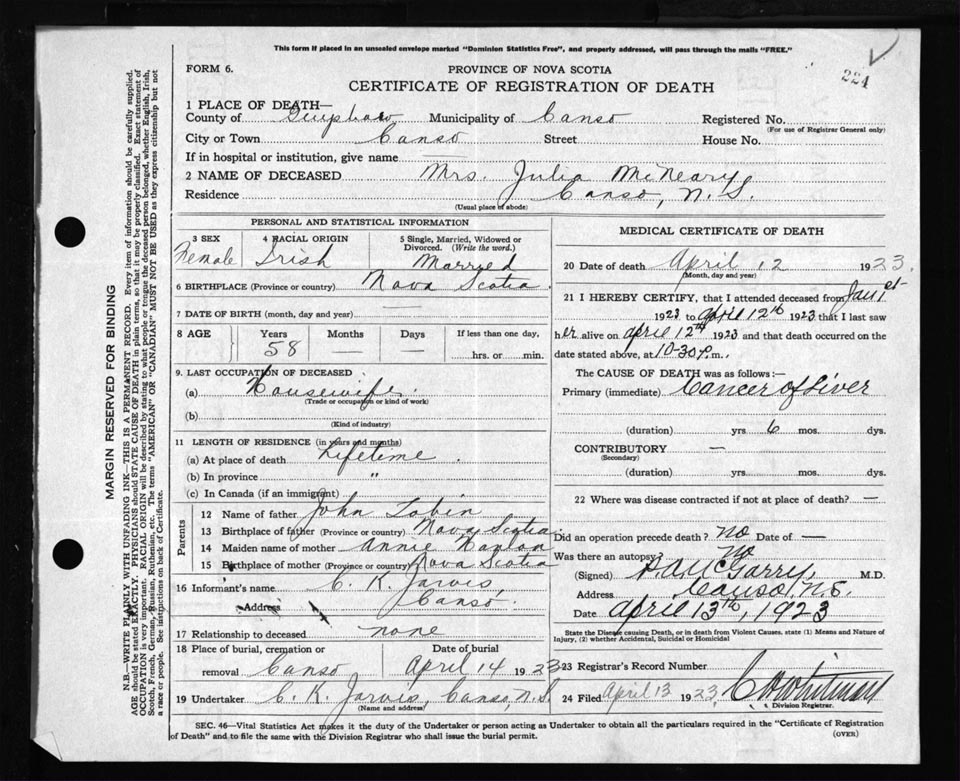 This form if placed in an unsealed envelope marked "Dominion Statistics Free", and properly addressed, will pass through the mails "FREE."
224
FORM 6.
PROVINCE OF NOVA SCOTIA
CERTIFICATE OF REGISTRATION OF DEATH
1 PLACE OF DEATH—
County of Municipality of Canso Registered No.
(For use of Registrar General only)
City or Town Canso Street House No.
If in hospital or institution, give name —
2 NAME OF DECEASED Mrs. Julia McNeary
Residence Canso, N.S.
(Usual place of abode)
PERSONAL AND STATISTICAL INFORMATION
3 SEX 4 RACIAL ORIGIN 5 Single, Married, Widowed or Divorced. (Write the word.)
Female Irish Married
6 BIRTHPLACE (Province or country) Nova Scotia
7 DATE OF BIRTH (month, day and year) —
8 AGE Years Months Days If less than one day,
58 — — hrs. or min.
9. LAST OCCUPATION OF DECEASED
(a) Housewife
(Trade or occupation or kind of work)
(b)
(Kind of industry)
11 LENGTH OF RESIDENCE (in years and months)
(a) At place of death Lifetime.
(b) In province "
(c) In Canada (if an immigrant)
Parents
12 Name of father John Tobin
13 Birthplace of father (Province or country) Nova Scotia
14 Maiden name of mother Annie Hanlon
15 Birthplace of mother (Province or country) Nova Scotia
16 Informant's name C. K. Jarvis
Address Canso.
17 Relationship to deceased none
18 Place of burial, cremation or removal Canso Date of burial April 14 1923
19 Undertaker C. K. Jarvis, Canso N.S.
(Name and address)
MEDICAL CERTIFICATE OF DEATH
20 Date of death April 12 1923.
(Month, day and year)
21 I HEREBY CERTIFY, that I attended deceased from Jan 1st
1923 to April 12th 1923 that I last saw
her alive on April 12th 1923 and that death occurred on
date stated above, at 10-30 P.m.
The CAUSE OF DEATH was as follows:—
Primary (immediate) Cancer of Liver
(duration) yrs 6 mos. dys.
CONTRIBUTORY —
(Secondary)
(duration) yrs. mos. dys.
22 Where was disease contracted if not at place of death? —
Did an operation precede death? no Date of —
Was there an autopsy? no
(Signed) McGarry, M.D.
Address Canso, N.S.
Date April 13th, 1923
State the Disease causing Death, or in death from Violent Causes, state (1) Means and Nature of Injury, (2) whether Accidental, Suicidal or Homicidal
23 Registrar's Record Number
24 Filed April 13 1923
Division Registrar.
SEC. 46—Vital Statistics Act makes it the duty of the Undertaker or person acting as Undertaker to obtain all the particulars required in the "Certificate of Registration
of Death" and to file the same with the Division Registrar who shall issue the burial permit.
(OVER)
MARGIN RESERVED FOR BINDING
N.B.—WRITE PLAINLY WITH UNFADING INK—THIS IS A PERMANENT RECORD. Every item of information should be carefully supplied.
AGE should be stated EXACTLY. PHYSICIANS should STATE CAUSE OF DEATH in plain terms, so that it may be properly classified. Exact statement of
OCCUPATION is very important. RACIAL ORIGIN will be described by stating to what people or tongue the deceased person belonged, whether English, Irish,
Scotch, French, German, Russian, Ruthenian, etc. The terms "AMERICAN" OR "CANADIAN" MUST NOT BE USED as they express citizenship but not
a race or people. See instructions on back of Certificate.